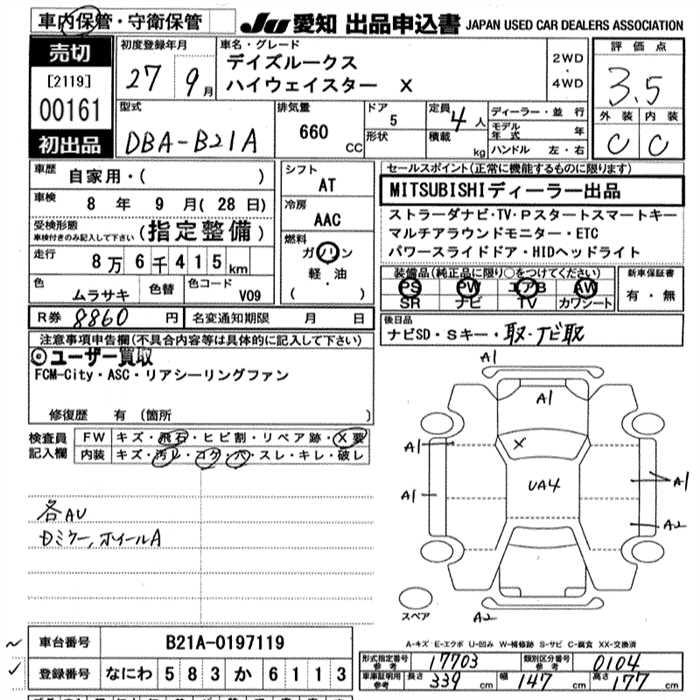 車内保管・守衛保管
JU 愛知 出品申込書 JAPAN USED CAR DEALERS ASSOCIATION
売切
[2119]
00161
初出品
初度登録年月
27 9月
車名・グレード
デイズルークス
ハイウェイスター X
2WD
・
4WD
評価点
3.5
外装 内装
C C
型式
DBA-B21A
排気量
660 CC
ドア
5
形状
定員 4人
積載 kg
ディーラー・並行
モデル年式 年
ハンドル 左・右
車歴 自家用・( )
車検 8年 9月(28日)
受検形態
車検付きのみ記入して下さい
(指定整備)
走行 8万6千415km
色 ムラサキ
色替
色コード V09
シフト
AT
冷房
AAC
燃料
ガソリン
軽・油
・( )
セールスポイント(正常に機能するものに限ります)
MITSUBISHIディーラー出品
ストラーダナビ・TV・Pスタートスマートキー
マルチアラウンドモニター・ETC
パワースライドドア・HIDヘッドライト
装備品(純正品に限り○をつけてください)
PS PW エアB AW
SR ナビ TV カワシート
新車保証書
有・無
R券 8860円
名変通知期限 月 日
後日品
ナビSD・Sキー・取・ナビ取
注意事項申告欄(不具合内容等は具体的に記入して下さい)
◎ユーザー買取
FCM-City・ASC・リアシーリングファン
修復歴 有(箇所 )
検査員記入欄
FW キズ・飛石・ヒビ割・リペア跡・X要
内装 キズ・汚レ・コゲ・穴・スレ・キレ・破レ
各AU
Dミラー,ホイールA
A1
A1
X
A1
A1
A1
UA4
A2
A2
スペア
A-キズ E-エクボ U-凹み W-補修跡 S-サビ C-腐食 XX-交換済
車台番号 B21A-0197119
登録番号 なにわ 583 か 6113
形式指定番号参考 17703
類別区分番号参考 0104
車庫証明用参考 長さ 339 幅 147 高さ 177
cm cm cm